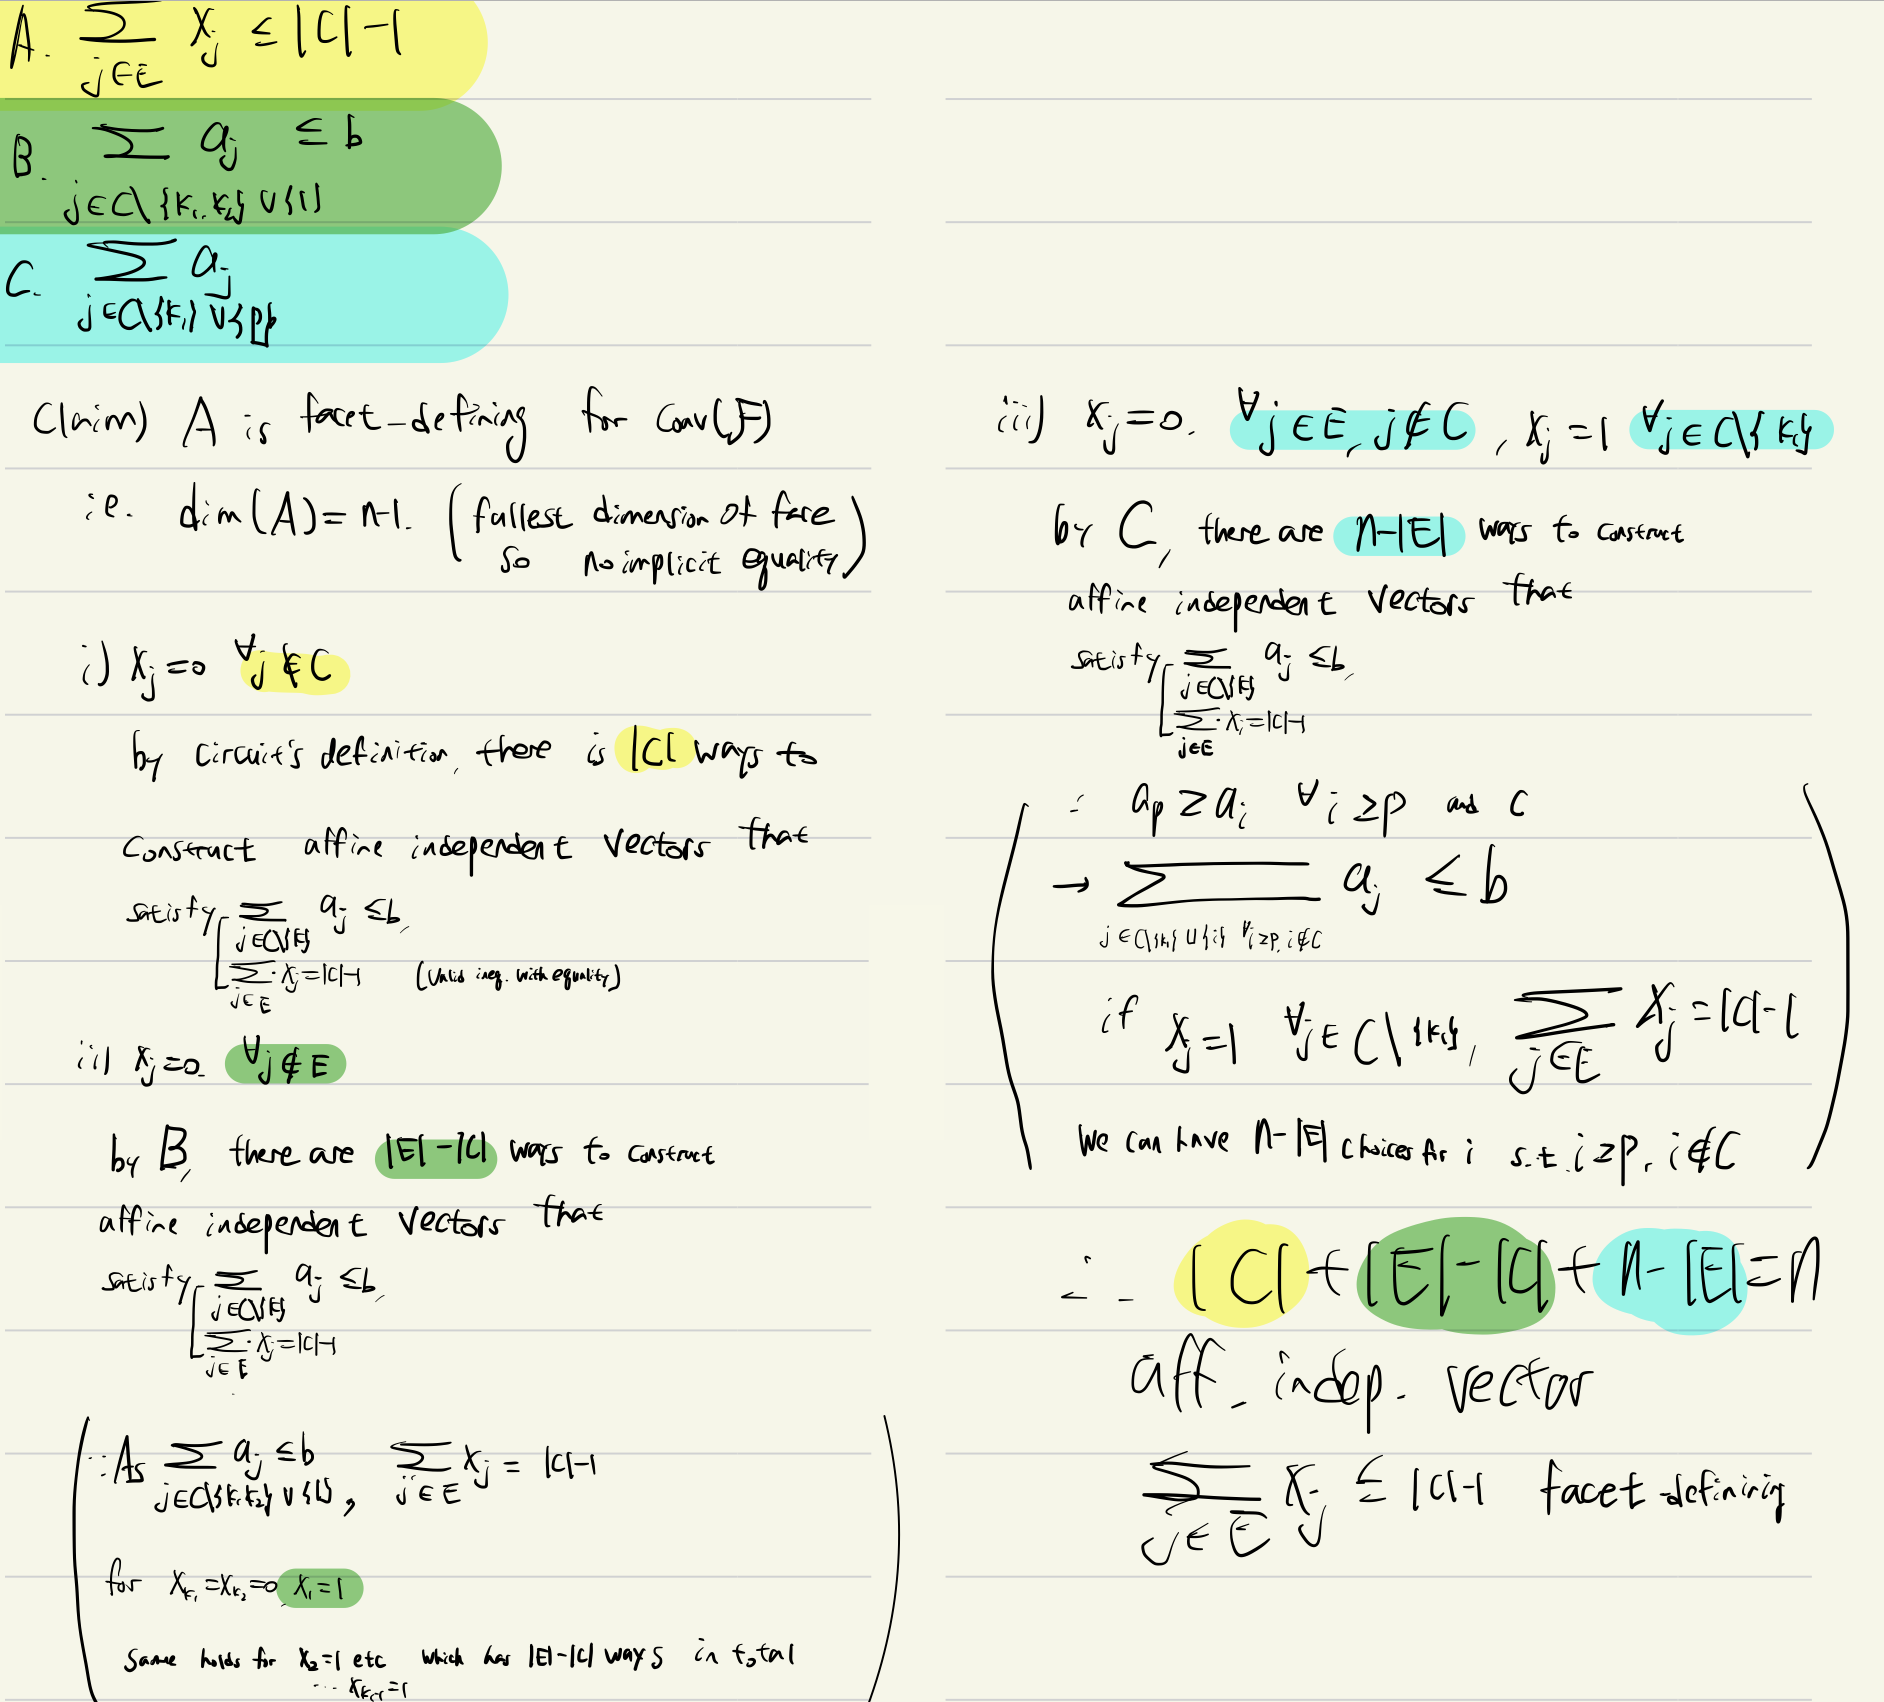 A. ∑_{j∈E} x_j ≤ |C|-1
B. ∑_{j∈C\{k_1,k_2}∪{1}} a_j ≤ b
C. ∑_{j∈C\{k_1}∪{p}} a_j
Claim) A is facet-defining for Conv(F)
i.e. dim(A) = n-1. (fullest dimension of face
so no implicit equality)
i) x_j = 0 ∀j∉C
by circuit's definition, there is |C| ways to
Construct affine independent vectors that
satisfy ∑_{j∈C\{E}} a_j ≤ b,
∑_{j∈E} x_j = |C|-1 (valid ineq. with equality)
ii) x_j = 0. ∀j∉E
by B, there are |E|-|C| ways to construct
affine independent vectors that
satisfy ∑_{j∈C\{E}} a_j ≤ b,
∑_{j∈E} x_j = |C|-1
(∵ As ∑_{j∈C\{k_1,k_2}∪{1}} a_j ≤ b, ∑_{j∈E} x_j = |C|-1
for x_{k_1} = x_{k_2} = 0, x_1 = 1
same holds for x_2 = 1 etc which has |E|-|C| ways in total
iii) x_j = 0. ∀j∈E, j∉C, x_j = 1 ∀j∈C\{k_1}
by C, there are n-|E| ways to construct
affine independent vectors that
satisfy ∑_{j∈C\{E}} a_j ≤ b,
∑_{j∈E} x_j = |C|-1
(∵ a_p ≥ a_i ∀i≥p and C
→ ∑_{j∈C\{k_1}∪{i} ∀i≥p, i∉C} a_j ≤ b
if x_j = 1 ∀j∈C\{k_1}, ∑_{j∈E} x_j = |C|-1
we can have n-|E| choices for i s.t. i≥p, i∉C)
∴ |C| + |E|-|C| + n-|E| = n
aff. indep. vector
∑_{j∈E} x_j ≤ |C|-1 facet-defining